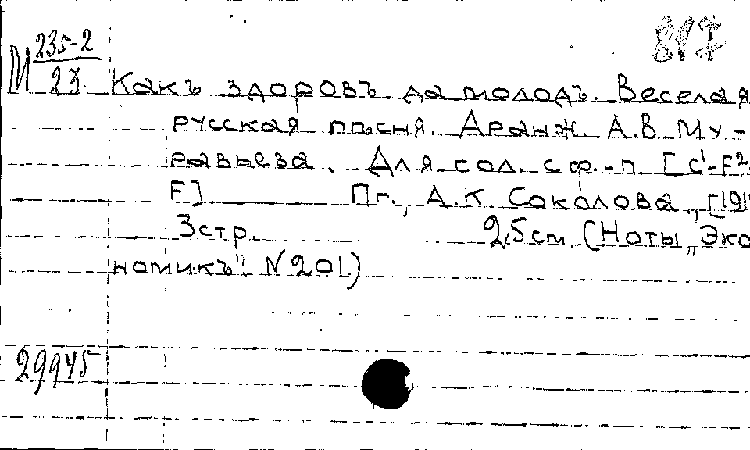 М 235-2
23
Какъ здоровъ да молодъ. Веселая
русская пѣсня. Аранж. А.В. Му-
равьева. Для сол. с ф.-п. [c¹-F².
F] Пг., А.К. Соколова, [191
3стр. 25см. (Ноты „Эко
номикъ" N201.)
29945